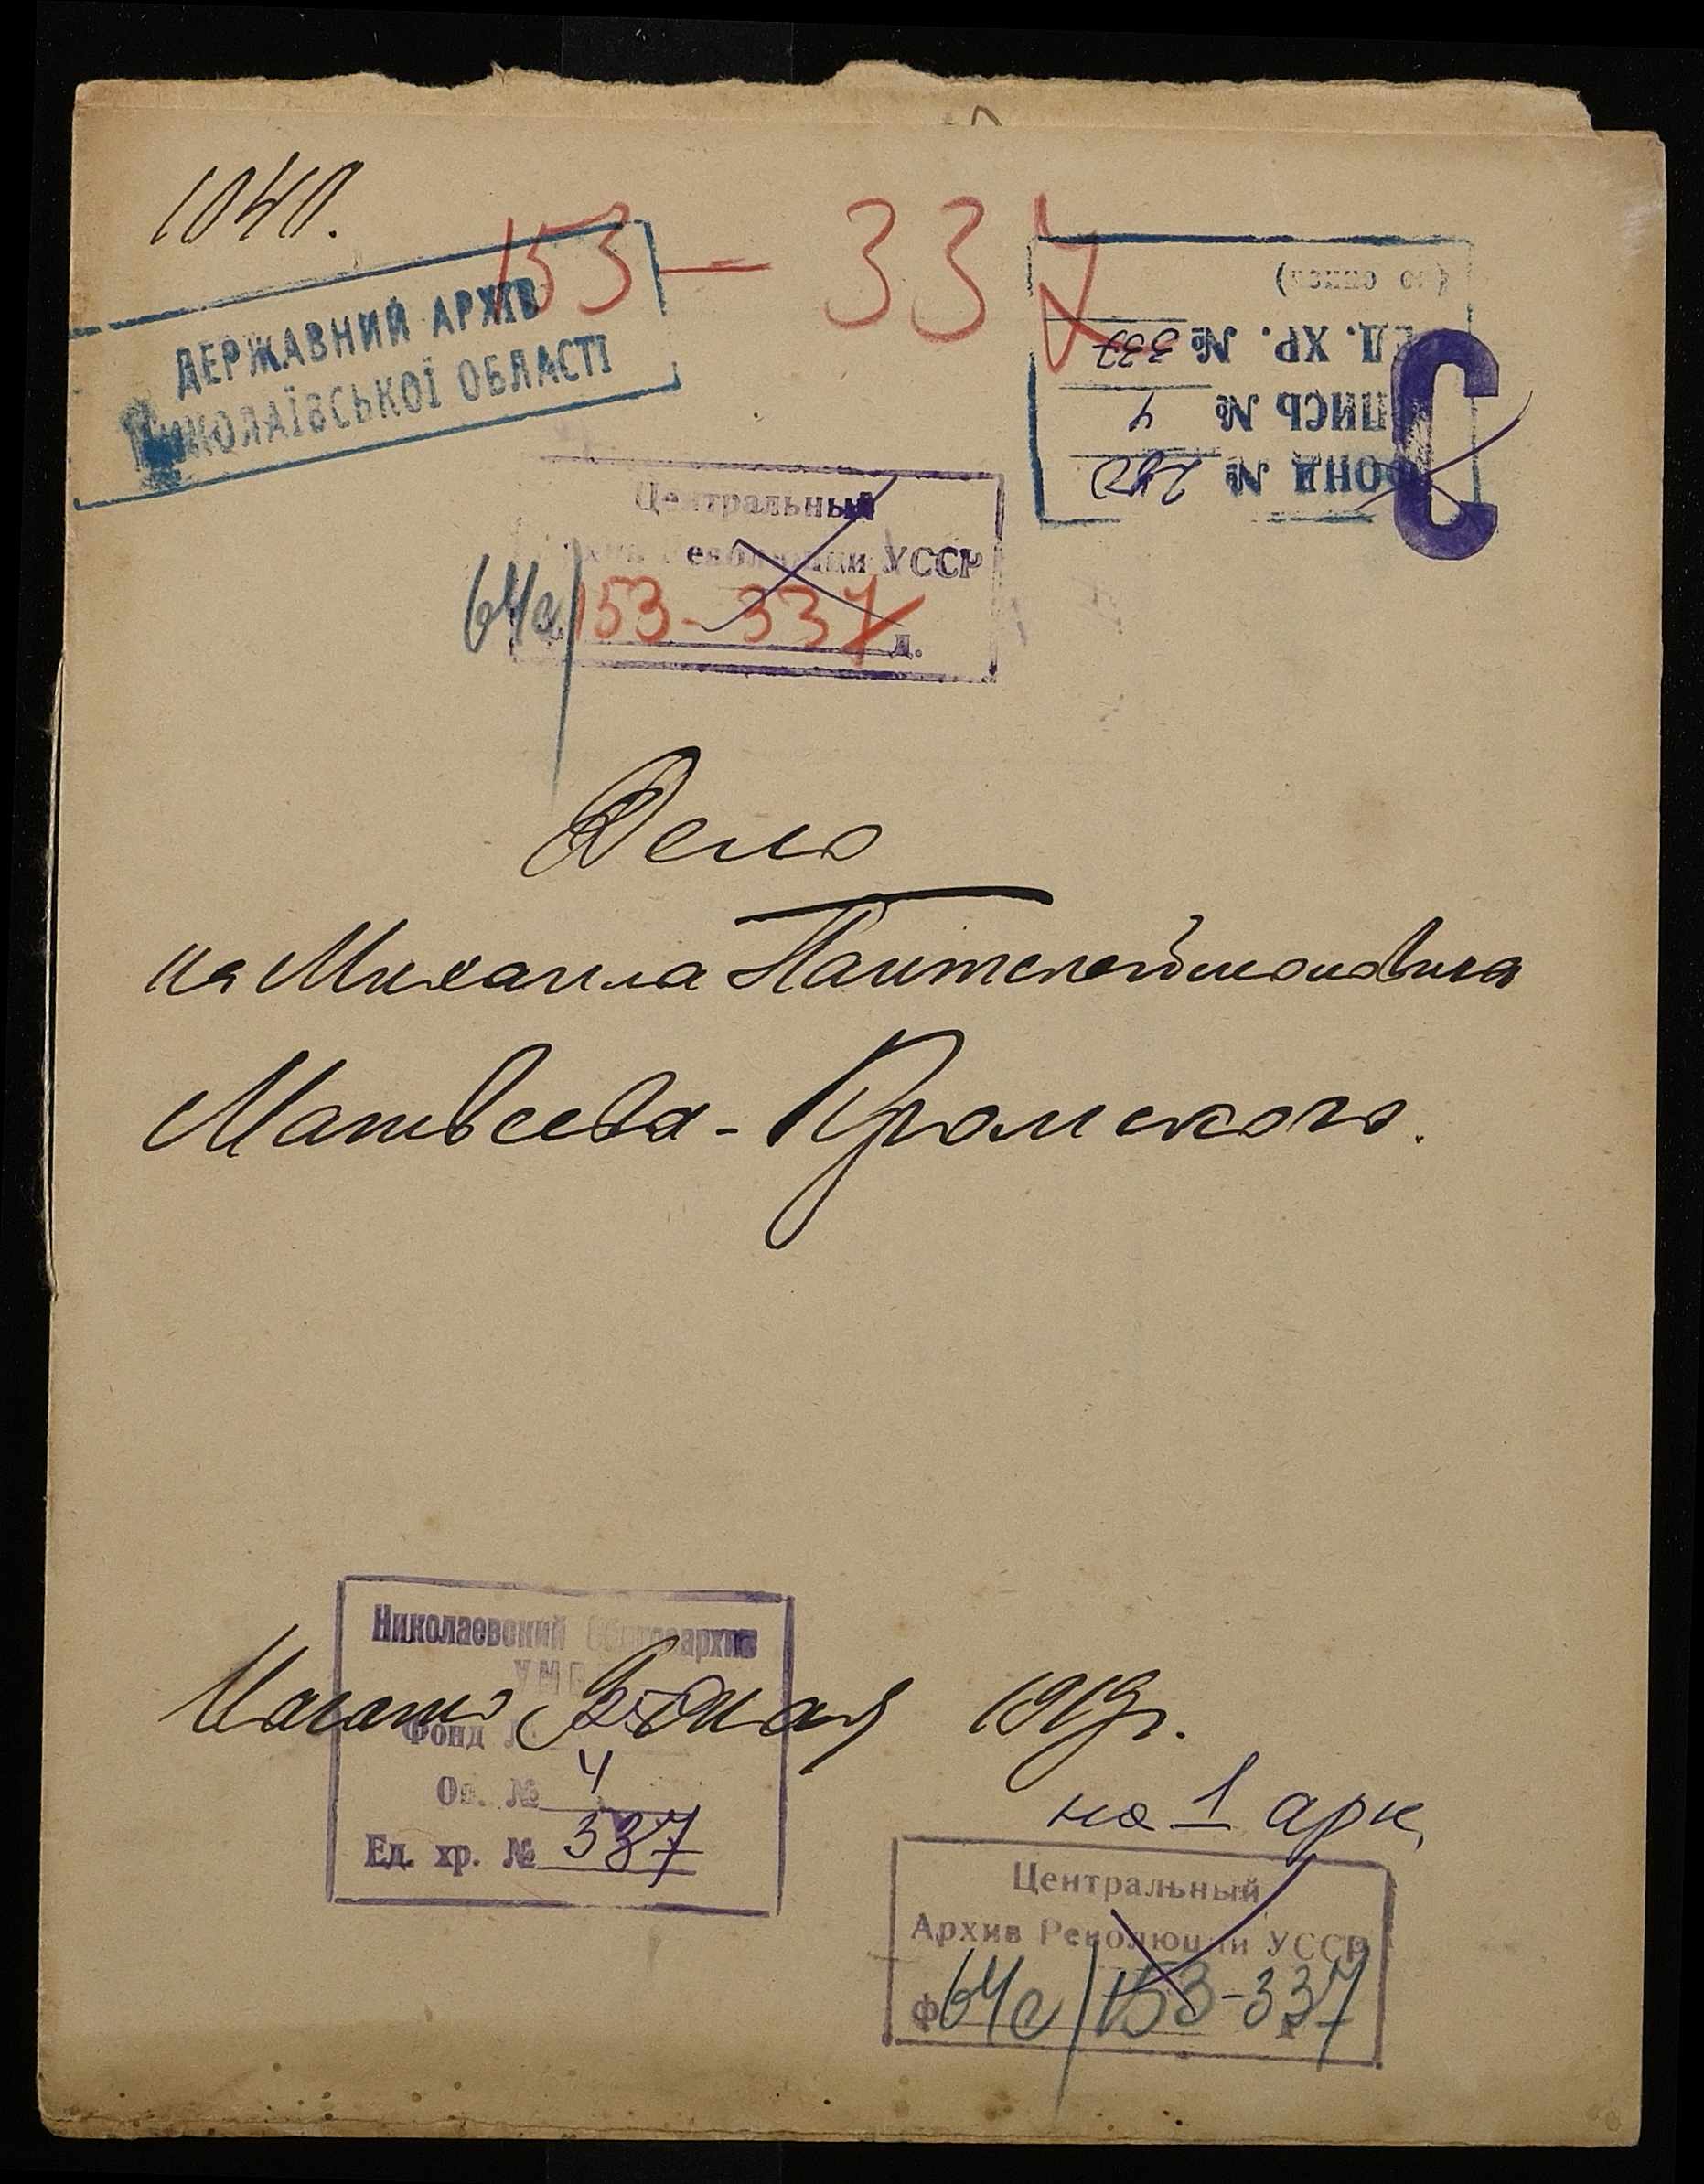 1040.
153 — 337
ДЕРЖАВНИЙ АРХІВ
МИКОЛАЇВСЬКОЇ ОБЛАСТІ
ФОНД №
ОПИСЬ № 4
ЕД. ХР. № 337
С
Центральный
Архив Революции УССР
64с/153-337 д.
Дело
на Михаила Пантелеймоновича
Матвеева-Кромского.
Николаевский Облгосархив
Фонд №
Начато мая 1919г.
Оп. № 4
Ед. хр. № 337
на 1 арк.
Центральный
Архив Революции УССР
ф 64с/153-337